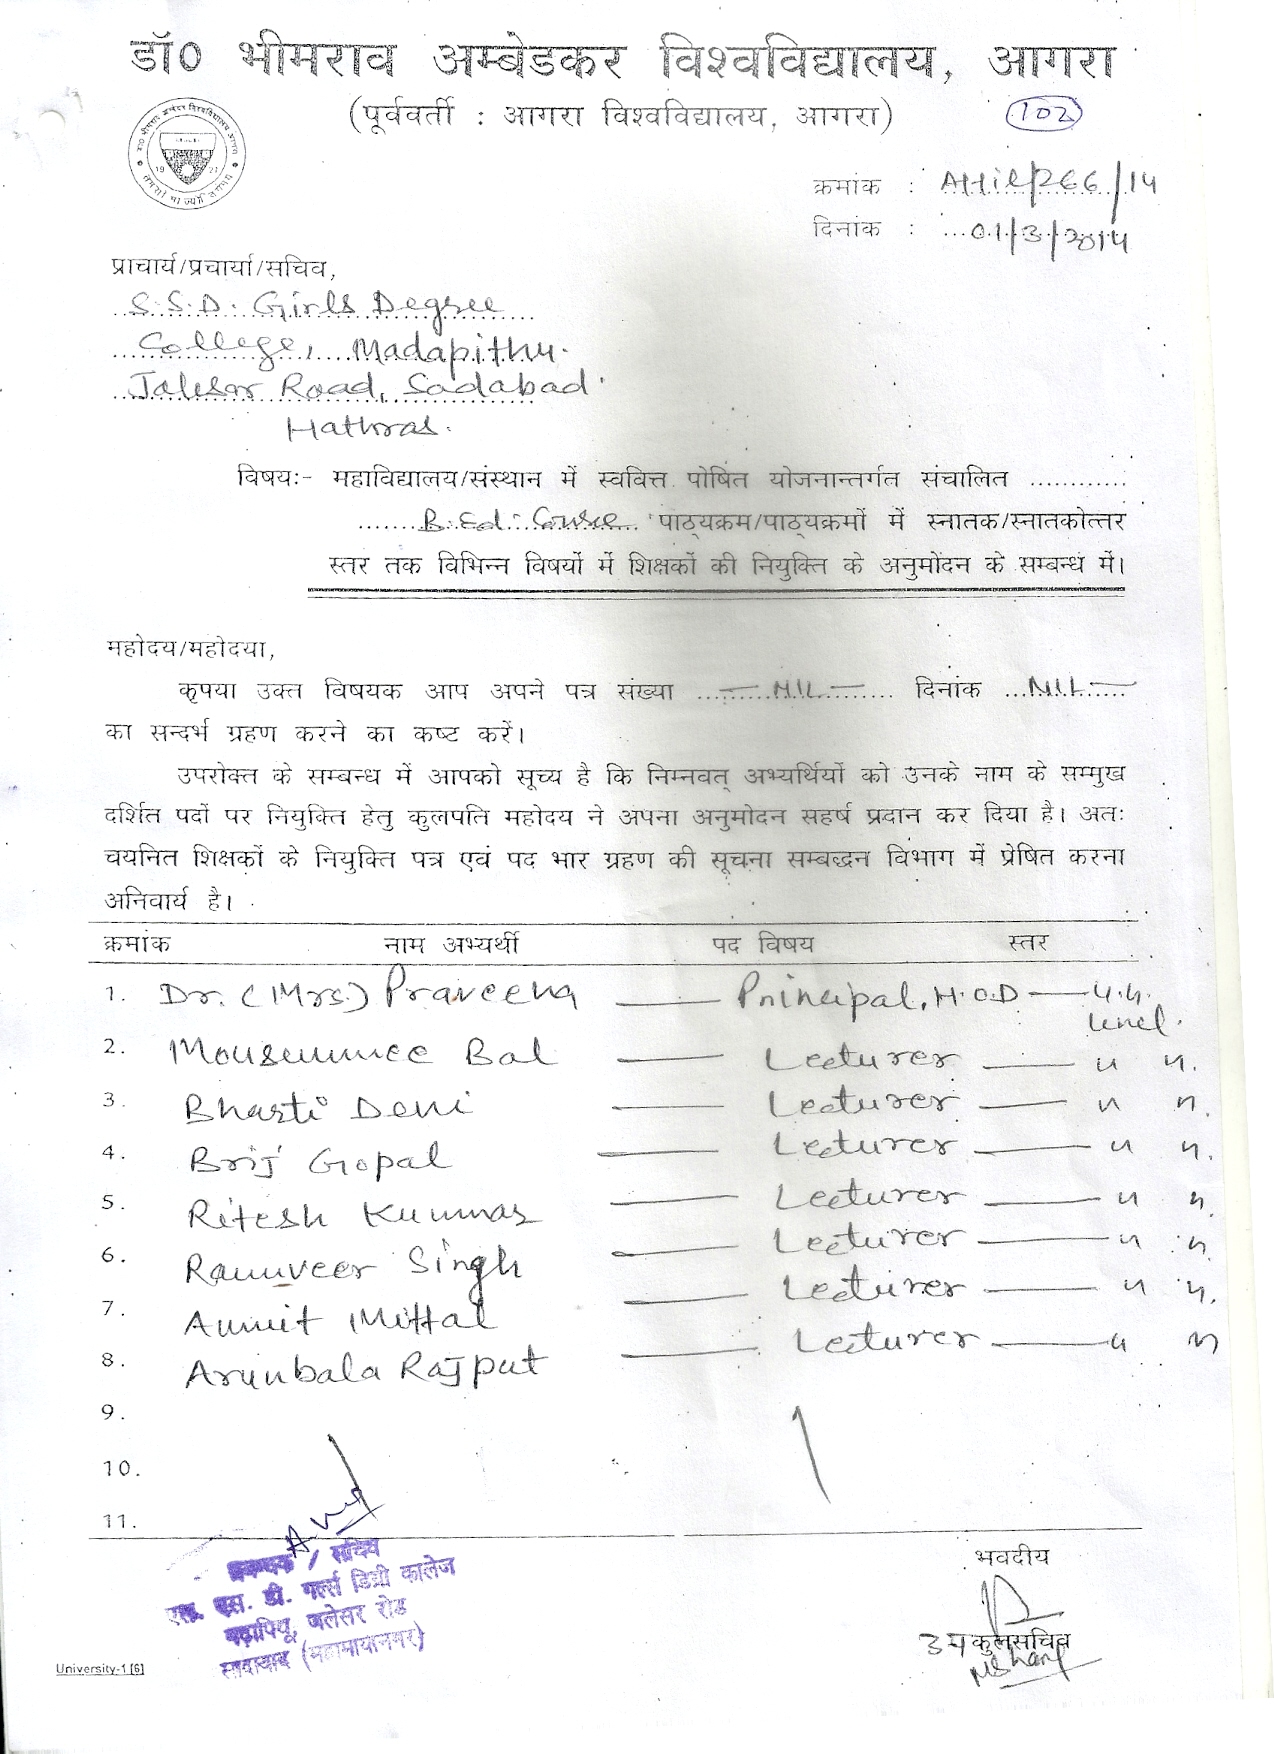 डॉ0 भीमराव अम्बेडकर विश्वविद्यालय, आगरा
(पूर्ववर्ती : आगरा विश्वविद्यालय, आगरा)
102
19 27
क्रमांक : /14
दिनांक : 01/3/2014
प्राचार्य/प्रचार्या/सचिव,
S.S.D. Girls Degree
College, Madapithu.
Jalesar Road, Sadabad
Hathras.
विषयः- महाविद्यालय/संस्थान में स्ववित्त पोषित योजनान्तर्गत संचालित ............
........B.Ed. Course... पाठ्यक्रम/पाठ्यक्रमों में स्नातक/स्नातकोत्तर
स्तर तक विभिन्न विषयों में शिक्षकों की नियुक्ति के अनुमोदन के सम्बन्ध में।
महोदय/महोदया,
कृपया उक्त विषयक आप अपने पत्र संख्या ...— NIL —... दिनांक ...NIL—...
का सन्दर्भ ग्रहण करने का कष्ट करें।
उपरोक्त के सम्बन्ध में आपको सूच्य है कि निम्नवत् अभ्यर्थियों को उनके नाम के सम्मुख
दर्शित पदों पर नियुक्ति हेतु कुलपति महोदय ने अपना अनुमोदन सहर्ष प्रदान कर दिया है। अतः
चयनित शिक्षकों के नियुक्ति पत्र एवं पद भार ग्रहण की सूचना सम्बद्धन विभाग में प्रेषित करना
अनिवार्य है।
क्रमांक नाम अभ्यर्थी पद विषय स्तर
1. Dr. (Mrs.) Praveena — Principal, H.O.D — U.G. Level.
2. Mousummee Bal — Lecturer — " "
3. Bharti Devi — Lecturer — " "
4. Brij Gopal — Lecturer — " "
5. Ritesh Kumar — Lecturer — " "
6. Ramveer Singh — Lecturer — " "
7. Ammit Mittal — Lecturer — " "
8. Arunbala Rajput — Lecturer — " "
9.
10.
11.
प्रबन्धक / सचिव
एस. एस. डी. गर्ल्स डिग्री कालेज
मढ़ापिथू, जलेसर रोड
सादाबाद (महामायानगर)
भवदीय
उप कुलसचिव
University-1 [6]